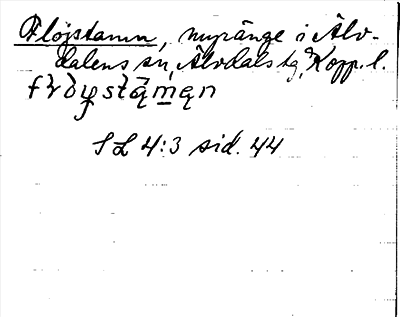 Fløjstamn, myränge i Älv-
dalens sn, Älvdals tg, Kopp. l.
SL 4:3 sid. 44